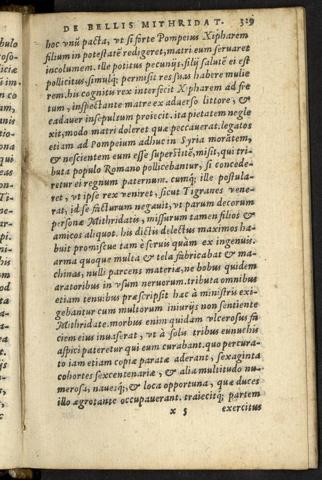 DE BELLIS MITHRIDAT. 329
hoc vnū pacta, vt si forte Pompeius Xipharem
filium in potestatē redigeret, matri eum seruaret
incolumem. ille potitus pecunijs, filij salutē ei est
pollicitus, simulq; permisit res suas habere mulie
rem. his cognitis rex interfecit Xipharem ad fre
tum, inspectante matre ex aduerso littore, &
cadauer insepultum proiecit. ita pietatem negle
xit, modo matri doleret quæ peccauerat. legatos
etiam ad Pompeium adhuc in Syria morātem,
& nescientem eum esse superstitē, misit, qui tri-
buta populo Romano pollicebantur, si concede-
retur ei regnum paternum. cumq; ille postula-
ret, vt ipse rex veniret, sicut Tigranes vene-
rat, id se facturum negauit, vt parum decorum
personæ Mithridatis, missurum tamen filios &
amicos aliquot. his dictis delectus maximos ha-
buit promiscue tam è seruis quàm ex ingenuis.
arma quoque multa & tela fabricabat & ma-
chinas, nulli parcens materiæ, ne bobus quidem
aratoribus in vsum neruorum. tributa omnibus
etiam tenuibus præscripsit hac à ministris exi-
gebantur cum multorum iniurijs non sentiente
Mithridate. morbus enim quidam vlcerosus fa
ciem eius inuaserat, vt à solis tribus eunuchis
aspici pateretur qui eum curabant. quo percura-
to iam etiam copiæ paratæ aderant, sexaginta
cohortes sexcentenariæ, & alia multitudo nu-
merosa, nauesq; & loca opportuna, quæ duces
illo ægrotante occupauerant. traiecitq; partem
x 5 exercitus